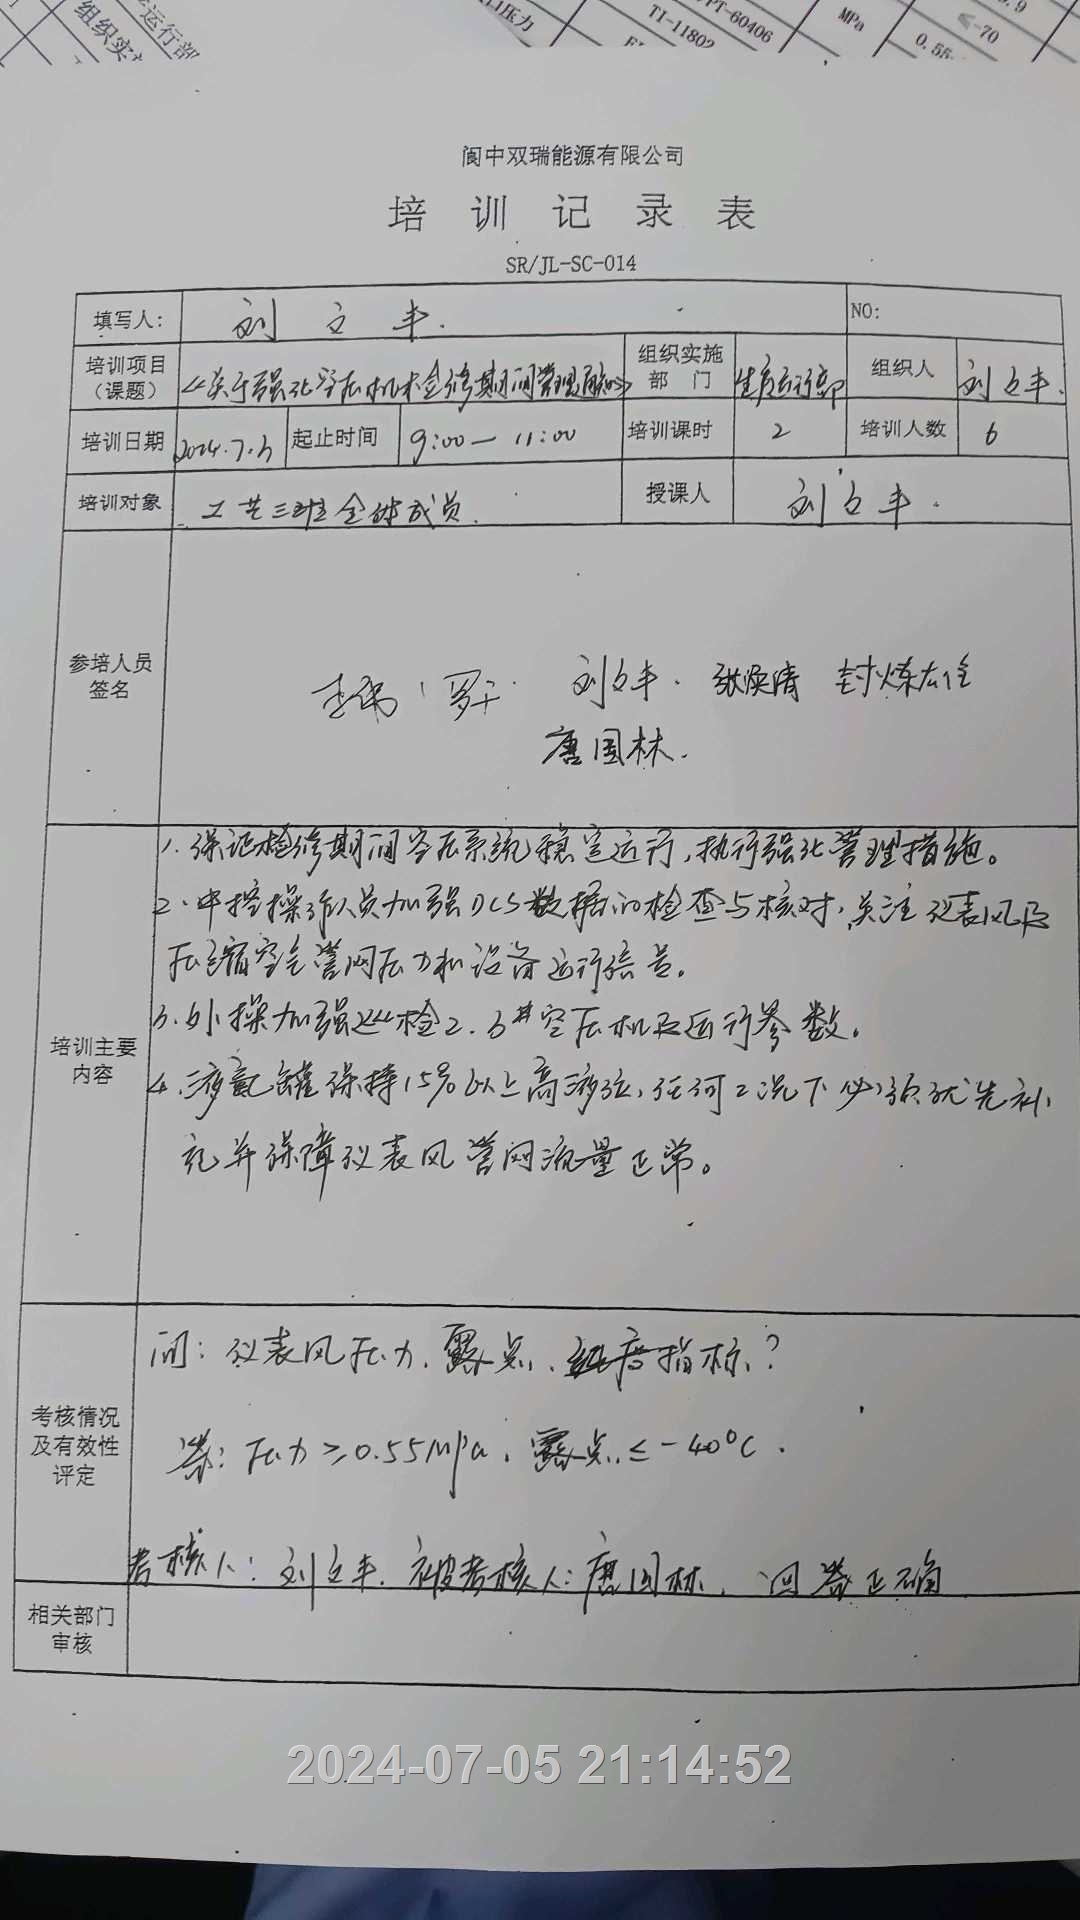 运行部
组织实
口压力
TI-11802
PT-60406
MPa
≤-70
0.55
阆中双瑞能源有限公司
培训记录表
SR/JL-SC-014
填写人: 刘文丰. NO:
培训项目（课题） 《关于强化空压机检修期间管理通知》 组织实施部门 生产运行部 组织人 刘文丰.
培训日期 2024.7.5 起止时间 9:00-11:00 培训课时 2 培训人数 6
培训对象 工艺三班全体成员. 授课人 刘文丰.
参培人员签名 李伟 罗 刘文丰. 张焕清 封炼
唐国林.
培训主要内容
1.保证检修期间空压系统稳定运行,执行强化管理措施。
2.中控操作人员加强DCS数据的检查与核对,关注仪表风及
压缩空气管网压力和设备运行信号。
3.外操加强巡检2.3#空压机及运行参数。
4.液氮罐保持15%以上高液位,任何工况下必须优先补
充并保障仪表风管网流量正常。
考核情况及有效性评定
问:仪表风压力、露点、温度指标?
答:压力≥0.55MPa,露点≤-40℃.
考核人:刘文丰. 被考核人:唐国林. 回答正确
相关部门审核
2024-07-05 21:14:52